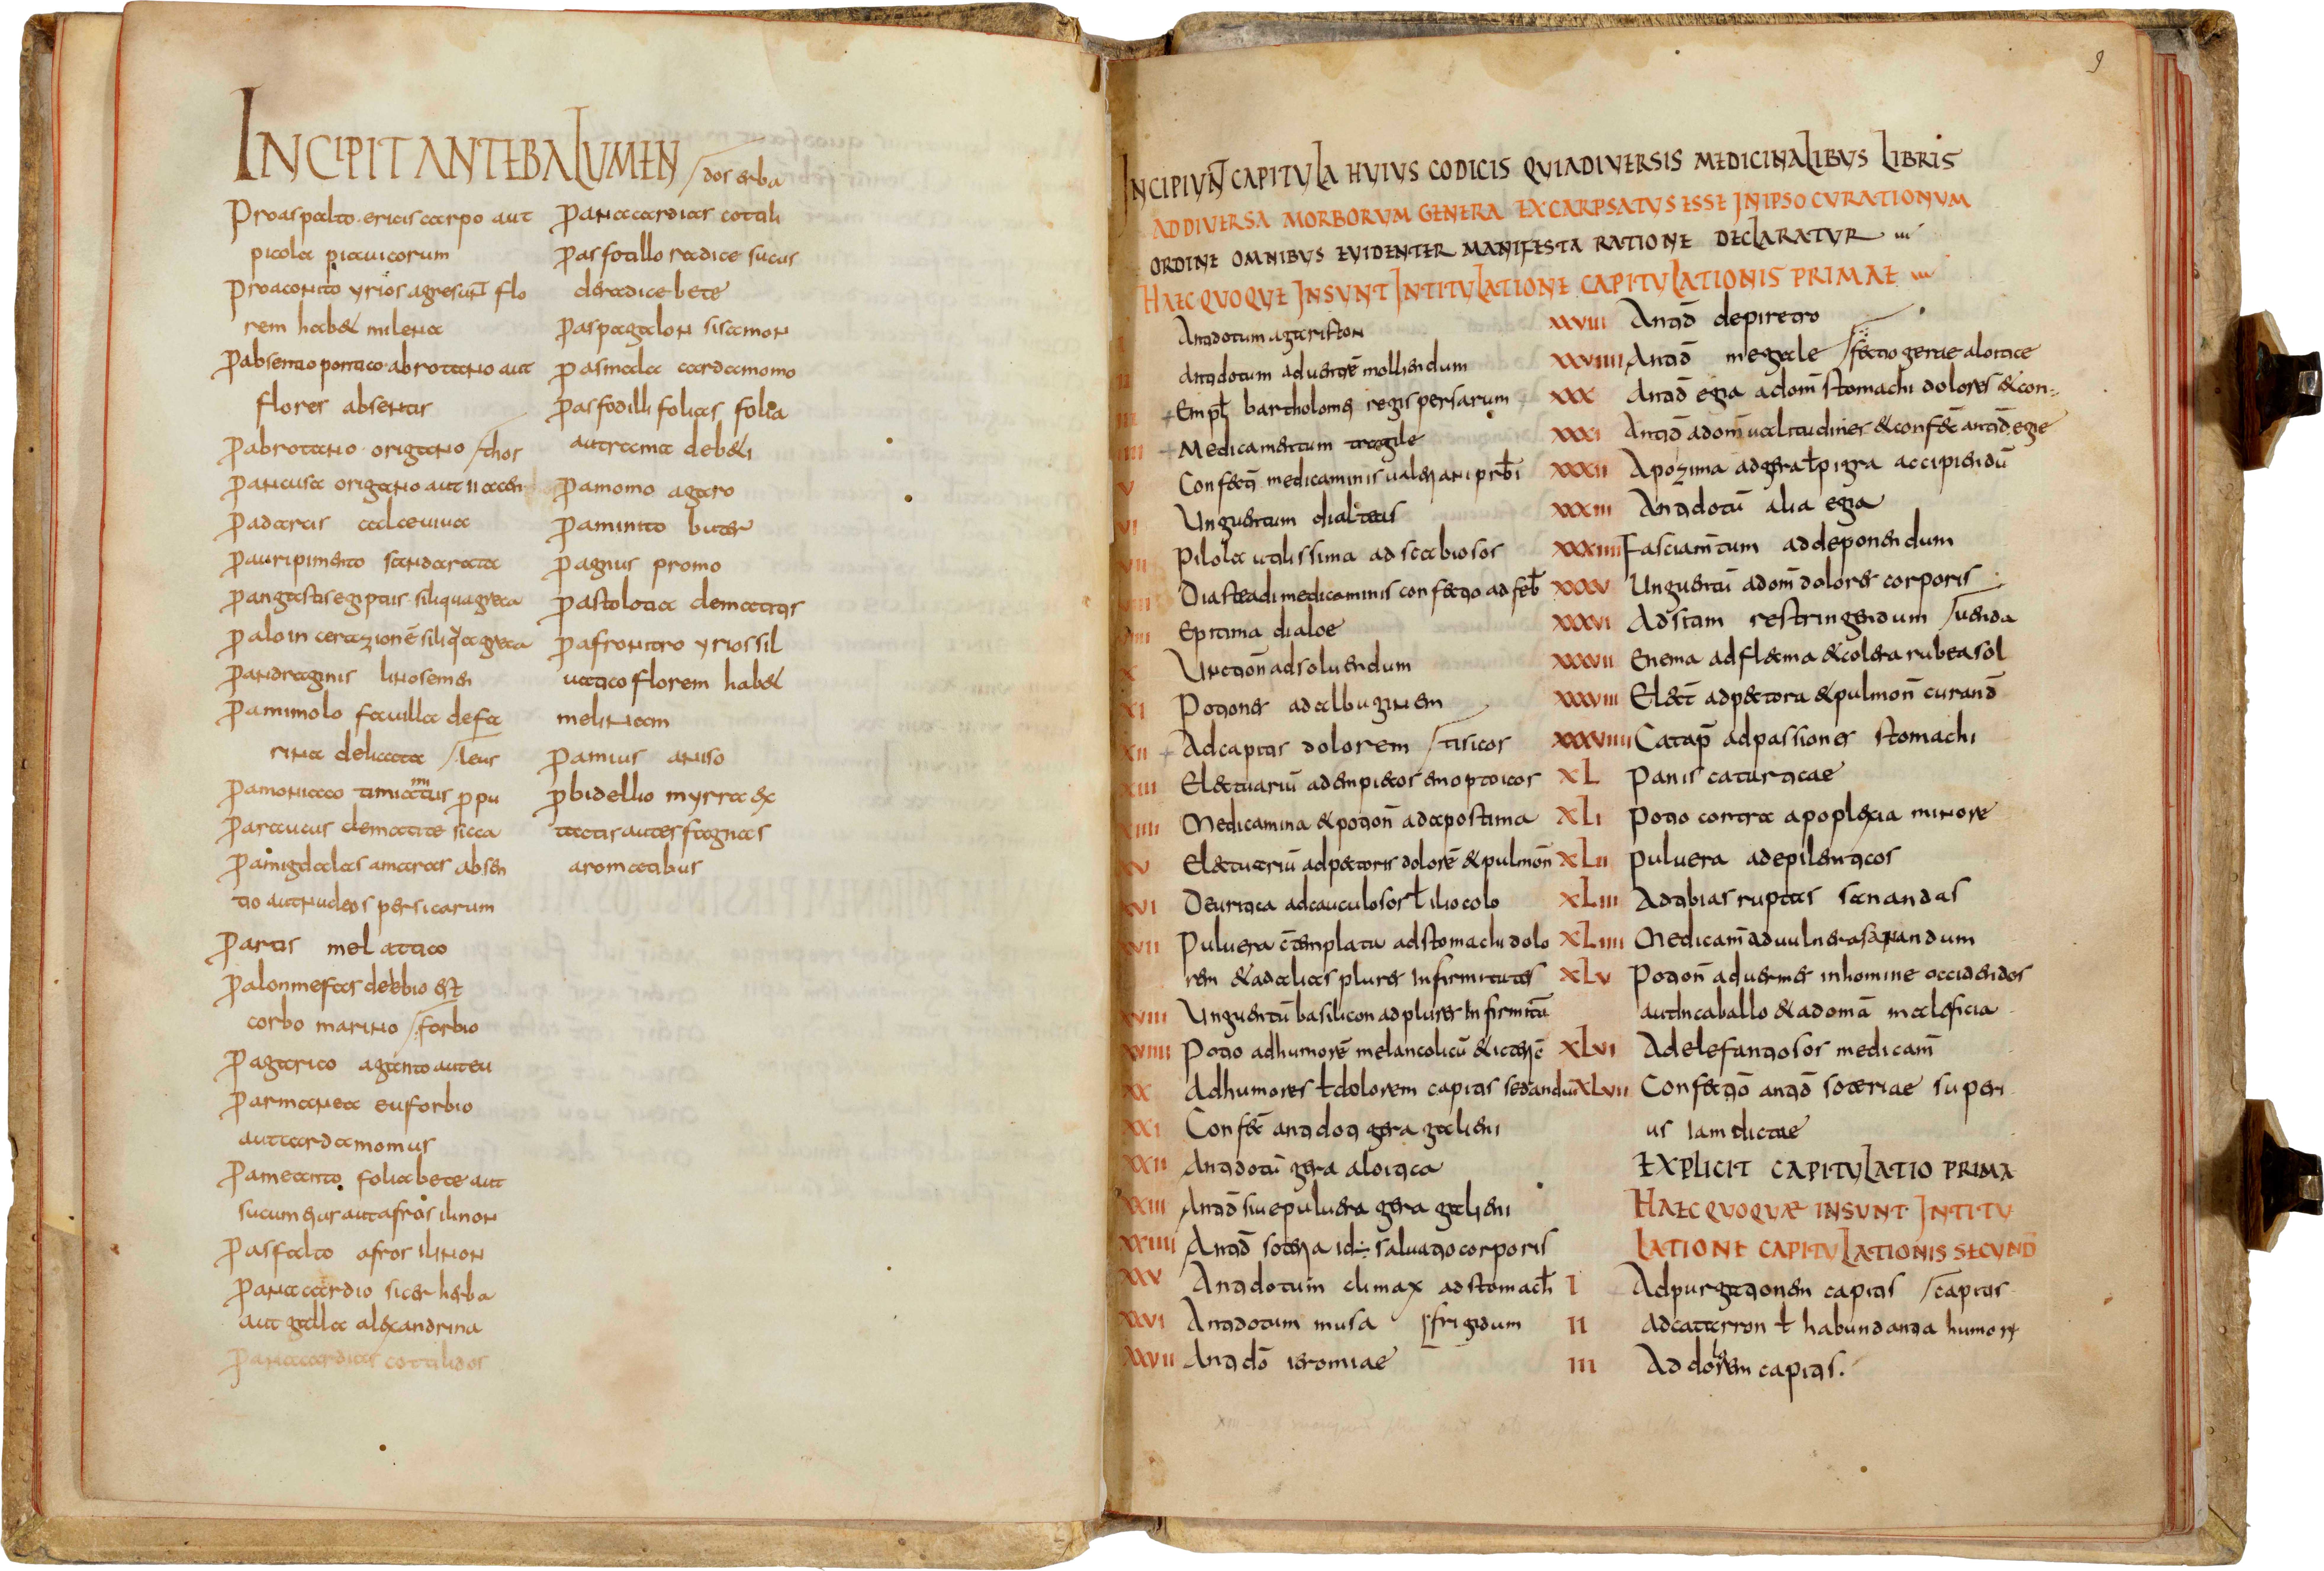 INCIPIT ANTEBALUMEN
P̄ro aspalto · ericis carpo aut
picola piauicorum
P̄ro aconito yrios agresunt flo
rem habet milena
P̄ absentio pontico · abrotano aut
flores absentis
P̄ abrotano · origano /thos
P̄ ancusa origano aut
P̄ adarcis calce uiua
P̄ auripimento sandarata
P̄ angastis egiptiis · siliqua greca
P̄ aloin siliqua greca
P̄ andraginis linosemen
P̄ amimolo fauilla de fa
rina delicata /leus
P̄ amoniaco timiamatus p pu
P̄ araucus dematite sicca
P̄ amigdalas amaras absen
tio aut nucleos persicarum
P̄ artis mel attico
P̄ alonmefas debbio est
corbo marino /forbio
P̄ agarico aganto aut eu
P̄ armanea euforbio
aut cardamomus
P̄ ameanto folia bete aut
sucum eius aut afros ilinon
P̄ asfalto afros ilinon
P̄ anacardio sicer herba
aut galla alexandrina
P̄ anacardias cotilidos
/dos erba
P̄ anacardias cotali
P̄ asfotillo radice sucus
de radice bete
P̄ aspagalon sisamon
P̄ asmala cardamomo
P̄ asfodilli folias folia
aut rama debeti
P̄ amomo agaro
P̄ aminito buter
P̄ agnus promo
P̄ astolotia dematitis
P̄ afronitro yrios sil
uatico florem habet
melineam
P̄ amius aniso
p̄ bidellio myrra ex
tactis aut es fragnas
aromatibus
9
INCIPIUNT CAPITULA HUIUS CODICIS QUI A DIVERSIS MEDICINALIBUS LIBRIS
AD DIVERSA MORBORUM GENERA EXCARPSATUS ESSE IN IPSO CURATIONUM
ORDINE OMNIBUS EVIDENTER MANIFESTA RATIONE DECLARATUR
HAEC QUOQUE INSUNT INTITULATIONE CAPITULATIONIS PRIMAE
I Antidotum agariston
II Antidotum ad uentrē molliendum
III + Empł bartholomei regis persarum
IIII + Medicamentum tragile
V Confecti medicaminis ualeriani prbi
VI Unguentum dialteis
VII Pilola utilissima ad scabiosos
VIII Diasteadi medicaminis confectio ad feb
VIIII Epitima dialoe
X Unctioñ ad soluendum
XI Potiones ad albuginem
XII + Ad capitis dolorem /tisicos
XIII Electuariū ad empiecos emoptoicos
XIIII Medicamina & potioñ ad apostima
XV Electuariū ad pectoris dolorē & pulmoñ
XVI Deuritica ad cauculosos ł iliocolo
XVII Puluera c̄templatu ad stomachi dolo
rem & ad alias plures infirmitates
XVIII Unguentū basilicon ad plures infirmitā
XVIIII Potio ad humorē melancolicū & ictericē
XX Ad humores ł dolorem capitis sedandū
XXI Confec̄ antidoti gera galieni
XXII Antidotū gera aloitica
XXIII Antid̄ siue puluera gera galieni
XXIIII Antid̄ sotera id ÷ saluatio corporis
XXV Antidotum climax ad stomach
XXVI Antidotum musa /frigidum
XXVII Antidō ieromiae
XXVIII Antid̄ de piretro
XXVIIII Antid̄ megale /fectio gerae aloitice
XXX Antid̄ egia ad om̄ stomachi dolores & con
XXXI Antid̄ ad om̄ ualitudines & confec̄ antid̄ egie
XXXII Apozima ad gera ł pigra accipiendū
XXXIII Antidotū alia egia
XXXIIII Fasciam̄tum ad deponendum
XXXV Unguentū ad om̄ dolores corporis
XXXVI Ad sitam restringendum /uenda
XXXVII Enema ad flecma & colera rubea sol
XXXVIII Elect̄ ad pectora & pulmoñ curand̄
XXXVIIII Catap̄ ad passiones stomachi
XL Panis catarticae
XLI Potio contra apoplexia minore
XLII Puluera ad epilenticos
XLIII Ad tibias ruptas sanandas
XLIIII Medicam̄ ad uulnera sanandum
XLV Potioñ ad uermes in homine occidendos
aut in caballo & ad omā maleficia
XLVI Ad elefantiosos medicam̄
XLVII Confectiō antid̄ soteriae superi
us iam dictae
EXPLICIT CAPITULATIO PRIMA
HAEC QUOQUAE INSUNT INTITU
LATIONE CAPITULATIONIS SECUND
I Ad purgationem capitis /capitis
II Ad catarron ł habundantia humoris
III Ad dolorem capitis.